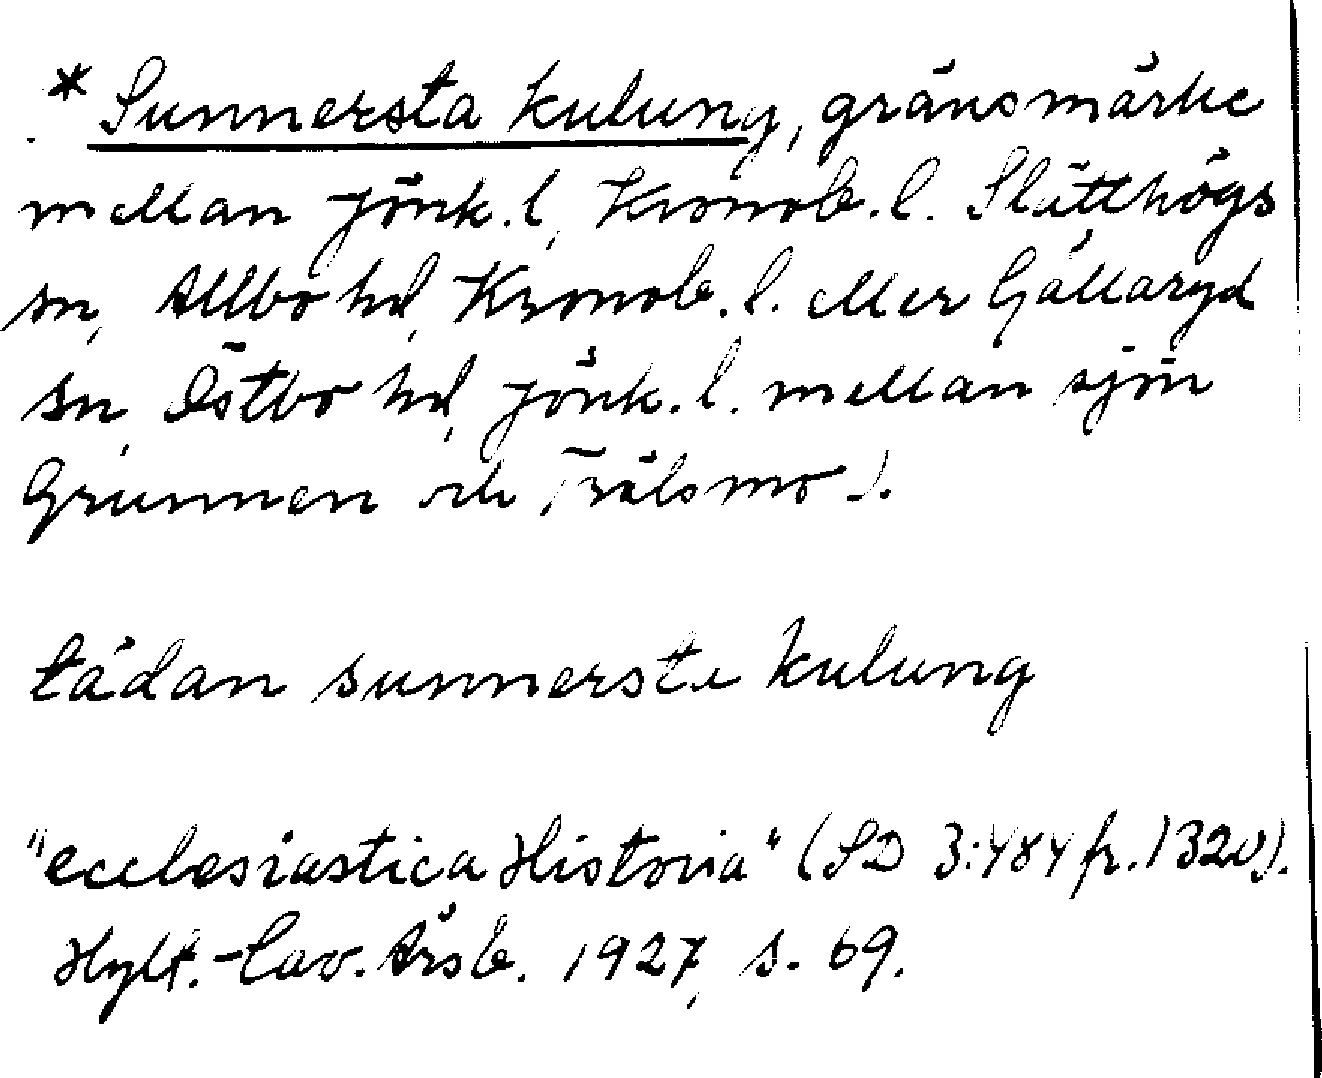 * Sunnersta kulung, gränsmärke
mellan Jönk. l, Kronob. l. Slätthögs
sn, Allbo hd, Kronob. l. eller Gällaryd
sn, Östbo hd, Jönk. l. mellan sjön
Grunnen och Trälsmo ).
tädan sunnerste kulung
"ecclesiastica Historia" (SD 3:484 fr. 1320).
Hylt.-Cav. Årsb. 1927, s. 69.